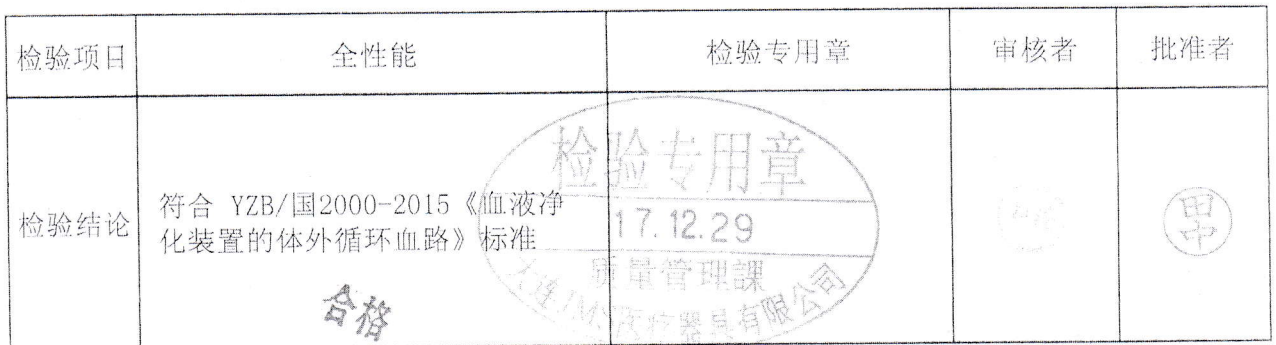 检验项目 全性能 检验专用章 审核者 批准者
检验结论
符合 YZB/国2000-2015《血液净
化装置的体外循环血路》标准
合格
检验专用章
17.12.29
质量管理課
大连JMS医疗器具有限公司
田中